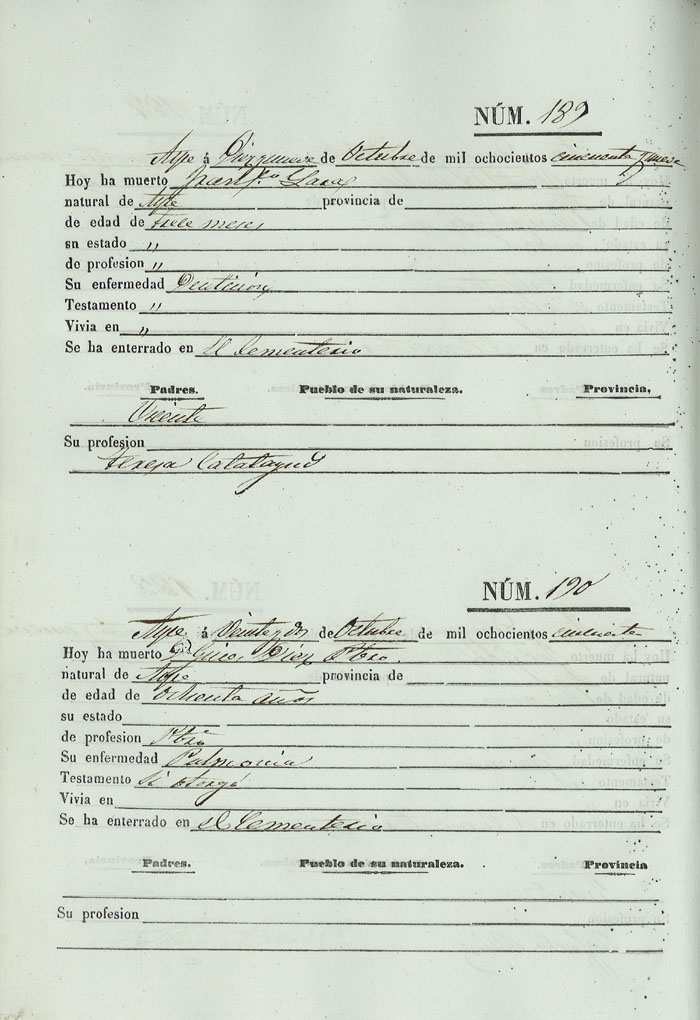 NÚM. 189
Aspe á Diezynueve de Octubre de mil ochocientos cincuenta y nueve
Hoy ha muerto Fran.co Lara
natural de Aspe provincia de
de edad de trece meses
sn estado "
de profesion "
Su enfermedad Denticion
Testamento "
Vivia en "
Se ha enterrado en el Cementerio
Padres. Pueblo de su naturaleza. Provincia.
Vicente
Su profesion
Teresa Calatayud
NÚM. 190
Aspe á Veintey dos de Octubre de mil ochocientos cincuenta
Hoy ha muerto Diez Pbro
natural de Aspe provincia de
de edad de ochenta años
su estado
de profesion Pbro
Su enfermedad Pulmonia
Testamento Si otorgó
Vivia en
Se ha enterrado en el Cementerio
Padres. Pueblo de su naturaleza. Provincia
Su profesion